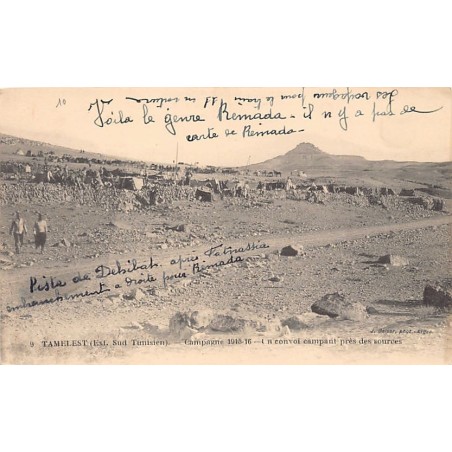 10
les voyageurs pour le train en voiture
Voila le genre Remada - il n'y a pas de
carte de Remada -
Piste de Dehibat, après Fatnaska
embranchement à droite pour Remada
9 TAMELEST (Ext. Sud Tunisien). - Campagne 1915-16 - Un convoi campant près des sources
phot.